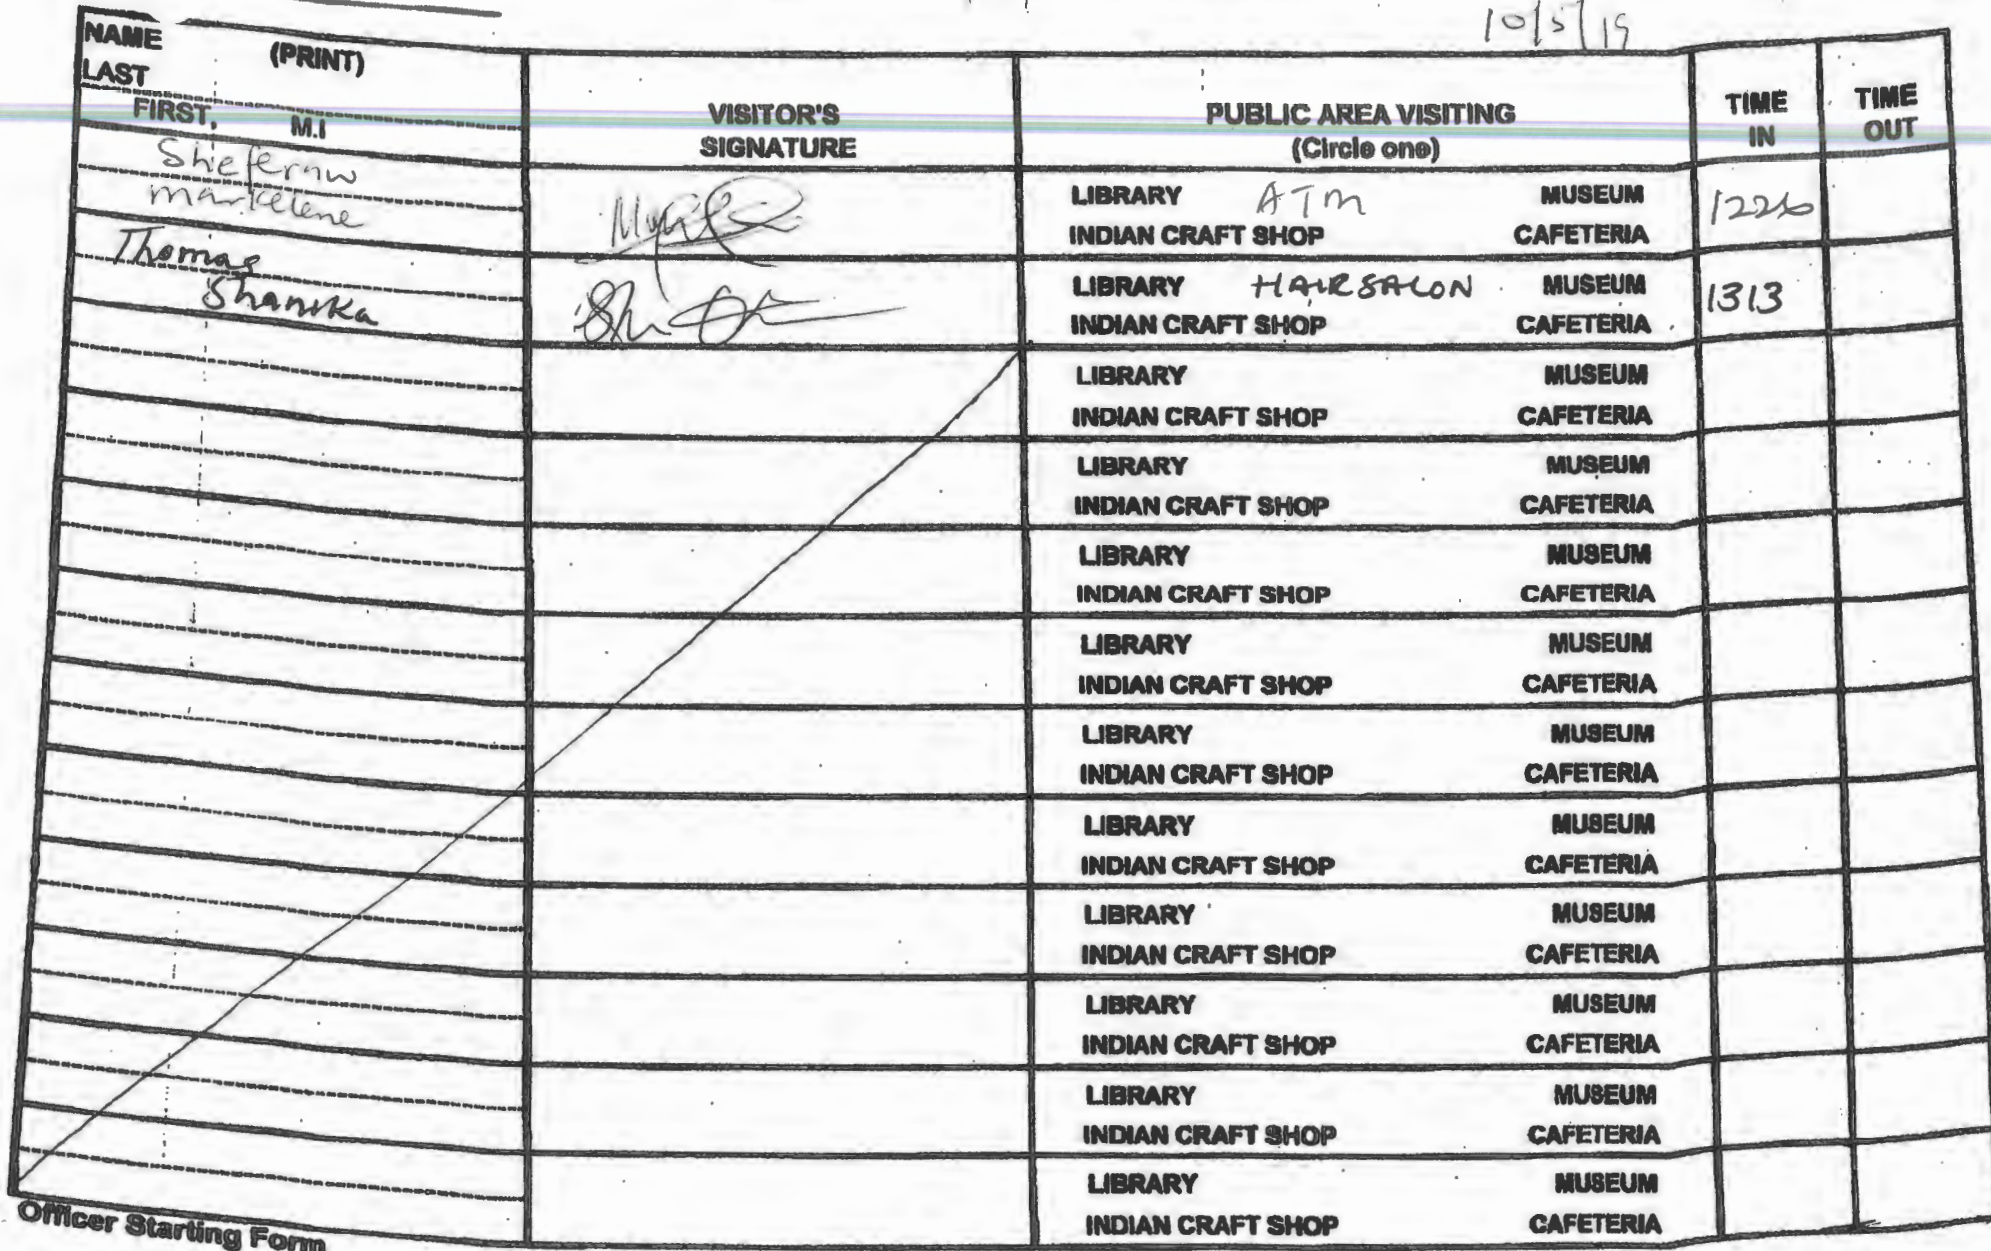 10/5/19
NAME (PRINT)
LAST
FIRST, M.I
VISITOR'S
SIGNATURE
PUBLIC AREA VISITING
(Circle one)
TIME
IN
TIME
OUT
Shieferaw
markelene
LIBRARY ATM MUSEUM
INDIAN CRAFT SHOP CAFETERIA
Thomas
Shanika
LIBRARY HAIRSALON MUSEUM
INDIAN CRAFT SHOP CAFETERIA
1313
LIBRARY MUSEUM
INDIAN CRAFT SHOP CAFETERIA
LIBRARY MUSEUM
INDIAN CRAFT SHOP CAFETERIA
LIBRARY MUSEUM
INDIAN CRAFT SHOP CAFETERIA
LIBRARY MUSEUM
INDIAN CRAFT SHOP CAFETERIA
LIBRARY MUSEUM
INDIAN CRAFT SHOP CAFETERIA
LIBRARY MUSEUM
INDIAN CRAFT SHOP CAFETERIA
LIBRARY MUSEUM
INDIAN CRAFT SHOP CAFETERIA
LIBRARY MUSEUM
INDIAN CRAFT SHOP CAFETERIA
LIBRARY MUSEUM
INDIAN CRAFT SHOP CAFETERIA
LIBRARY MUSEUM
INDIAN CRAFT SHOP CAFETERIA
Officer Starting Form